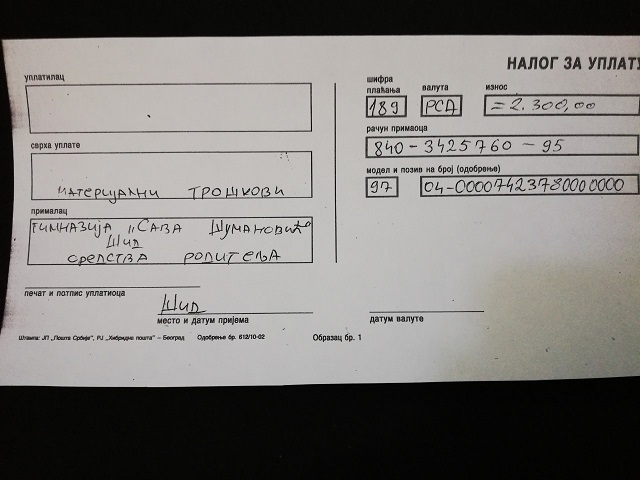 НАЛОГ ЗА УПЛАТУ
уплатилац
сврха уплате
материјални трошкови
прималац
Гимназија „Сава Шумановић“
Шид
средства родитеља
печат и потпис уплатиоца
Шид
место и датум пријема
шифра
плаћања
189
валута
РСД
износ
=2.300,00
рачун примаоца
840-3425760-95
модел и позив на број (одобрење)
97
04-00007423780000000
датум валуте
Штампа: ЈП „Пошта Србије“, РЈ „Хибридна пошта“ – Београд Одобрење бр. 612/10-02 Образац бр. 1